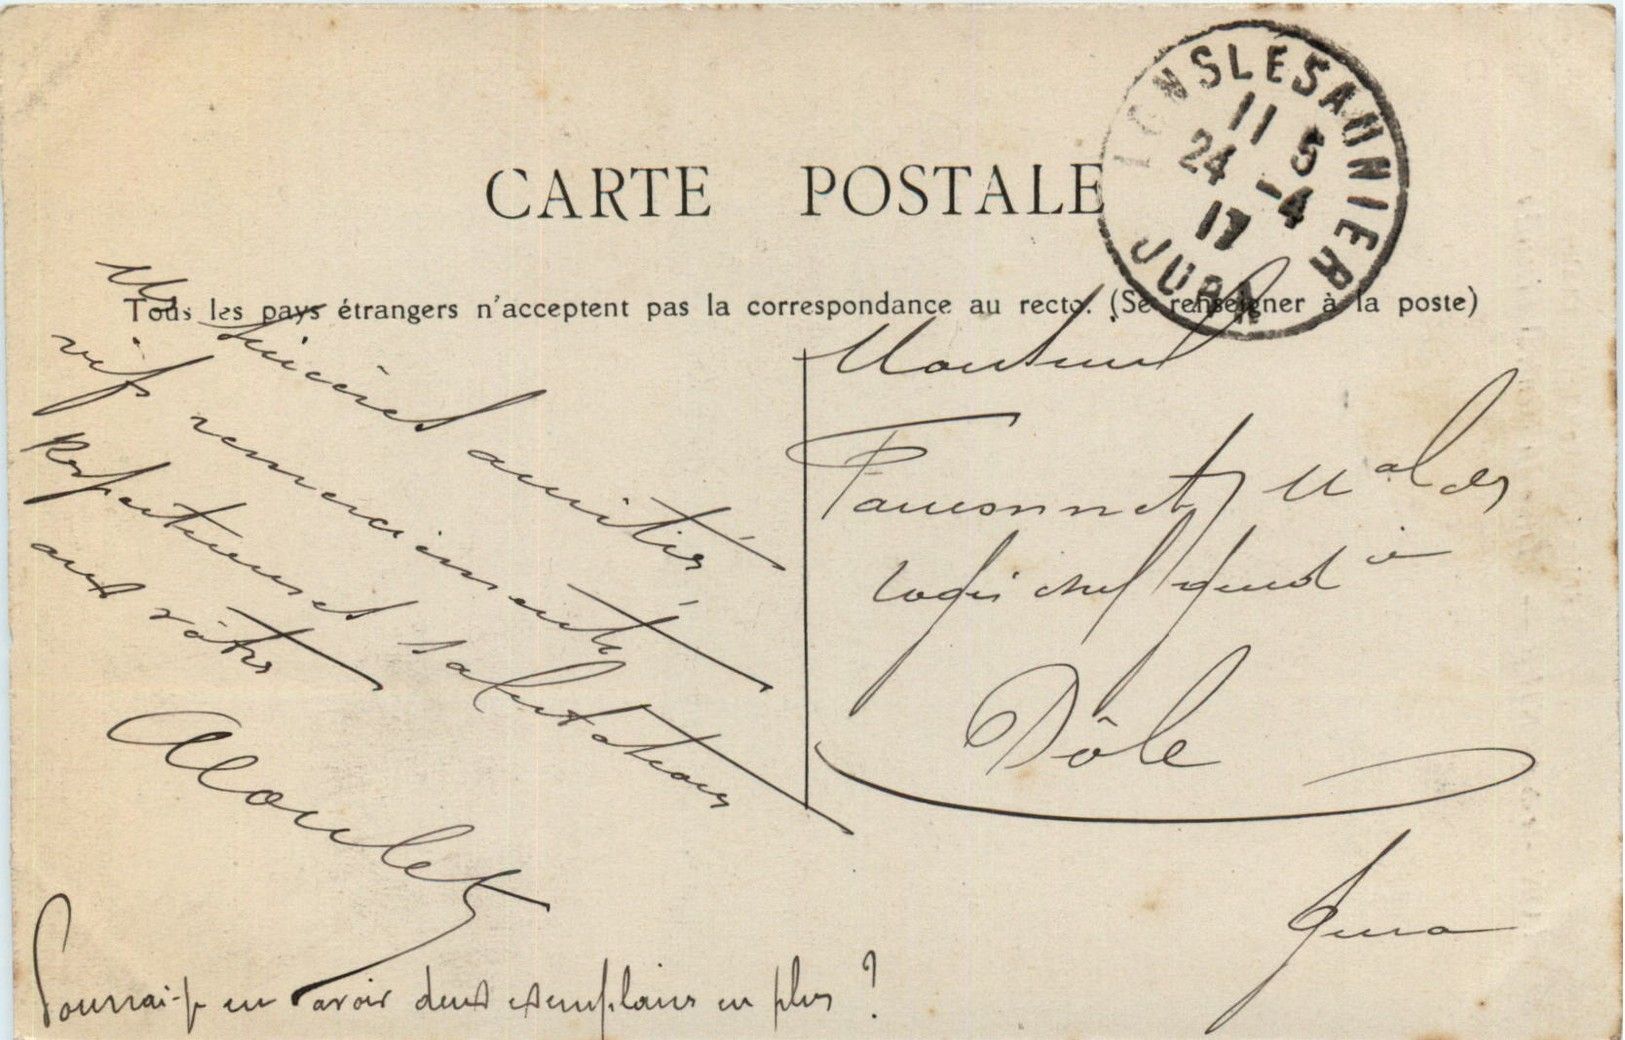 CARTE POSTALE
LONS LE SAUNIER
11 5
24 -4
17
JURA
Tous les pays étrangers n'acceptent pas la correspondance au recto. (Se renseigner à la poste)
Sincères amitiés
vifs remerciements
Respectueuses salutations
aux vôtres
Monsieur
Mal des
logis chef gend à
Dôle
Jura
Pourrai-je en avoir deux exemplaires en plus ?